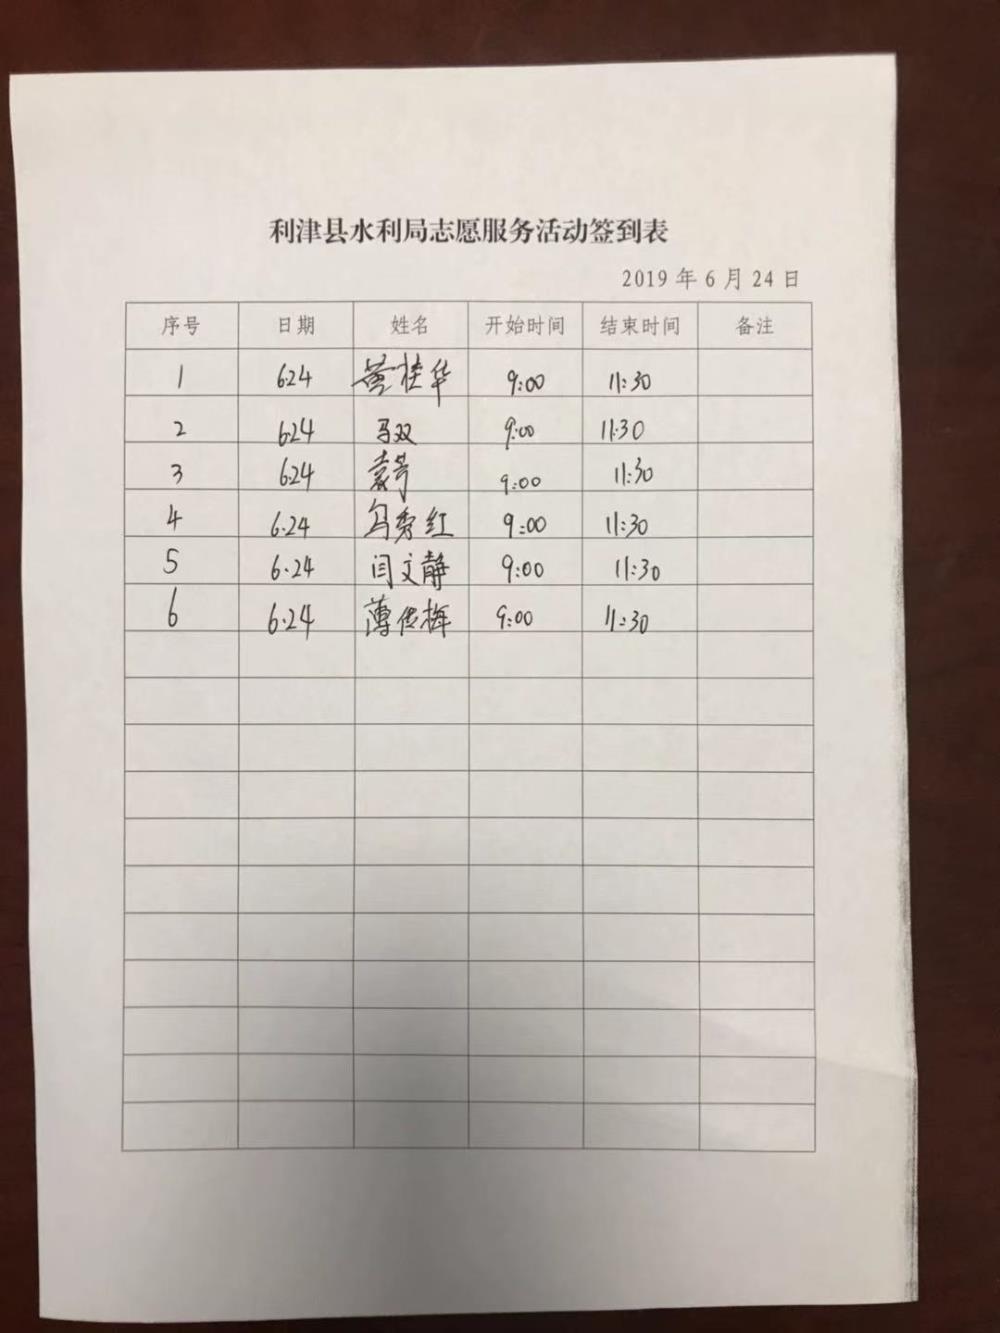 利津县水利局志愿服务活动签到表
2019 年 6 月 24 日
序号 日期 姓名 开始时间 结束时间 备注
1 6.24 黄桂华 9:00 11:30
2 6.24 马双 9:00 11:30
3 6.24 袁芳 9:00 11:30
4 6.24 秀红 9:00 11:30
5 6.24 闫文静 9:00 11:30
6 6.24 薄传梅 9:00 11:30